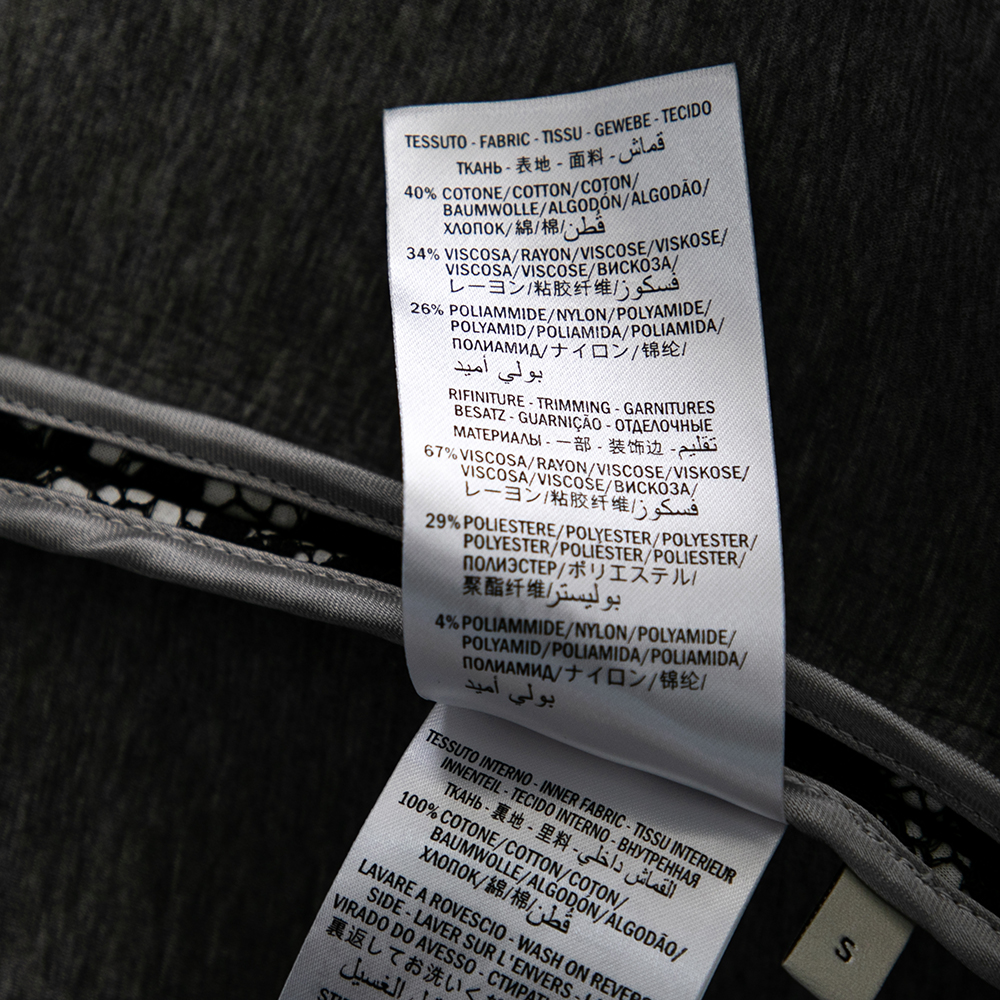 TESSUTO - FABRIC - TISSU - GEWEBE - TECIDO
ТКАНЬ - 表地 - 面料 - قماش
40% COTONE/COTTON/COTON/
BAUMWOLLE/ALGODÓN/ALGODÃO/
ХЛОПОК/綿/棉/قُطن
34% VISCOSA/RAYON/VISCOSE/VISKOSE/
VISCOSA/VISCOSE/ВИСКОЗА/
レーヨン/粘胶纤维/فسكوز
26% POLIAMMIDE/NYLON/POLYAMIDE/
POLYAMID/POLIAMIDA/POLIAMIDA/
ПОЛИАМИД/ナイロン/锦纶/
بولي أميد
RIFINITURE - TRIMMING - GARNITURES
BESATZ - GUARNIÇÃO - ОТДЕЛОЧНЫЕ
МАТЕРИАЛЫ - 一部 - 装饰边 - تقليم
67% VISCOSA/RAYON/VISCOSE/VISKOSE/
VISCOSA/VISCOSE/ВИСКОЗА/
レーヨン/粘胶纤维/فسكوز
29% POLIESTERE/POLYESTER/POLYESTER/
POLYESTER/POLIÉSTER/POLIESTER/
ПОЛИЭСТЕР/ポリエステル/
聚酯纤维/بوليستر
4% POLIAMMIDE/NYLON/POLYAMIDE/
POLYAMID/POLIAMIDA/POLIAMIDA/
ПОЛИАМИД/ナイロン/锦纶/
بولي أميد
TESSUTO INTERNO - INNER FABRIC - TISSU INTERIEUR
INNENTEIL - TECIDO INTERNO - ВНУТРЕННАЯ
ТКАНЬ - 裏地 - 里料 - القماش داخلي
100% COTONE/COTTON/COTON/
BAUMWOLLE/ALGODÓN/ALGODÃO/
ХЛОПОК/綿/棉/قُطن
LAVARE A ROVESCIO - WASH ON REVERS
SIDE - LAVER SUR L'ENVERS - LAVAR
VIRADO DO AVESSO - СТИРАТ
裏返してお洗いく
الغسيل
S